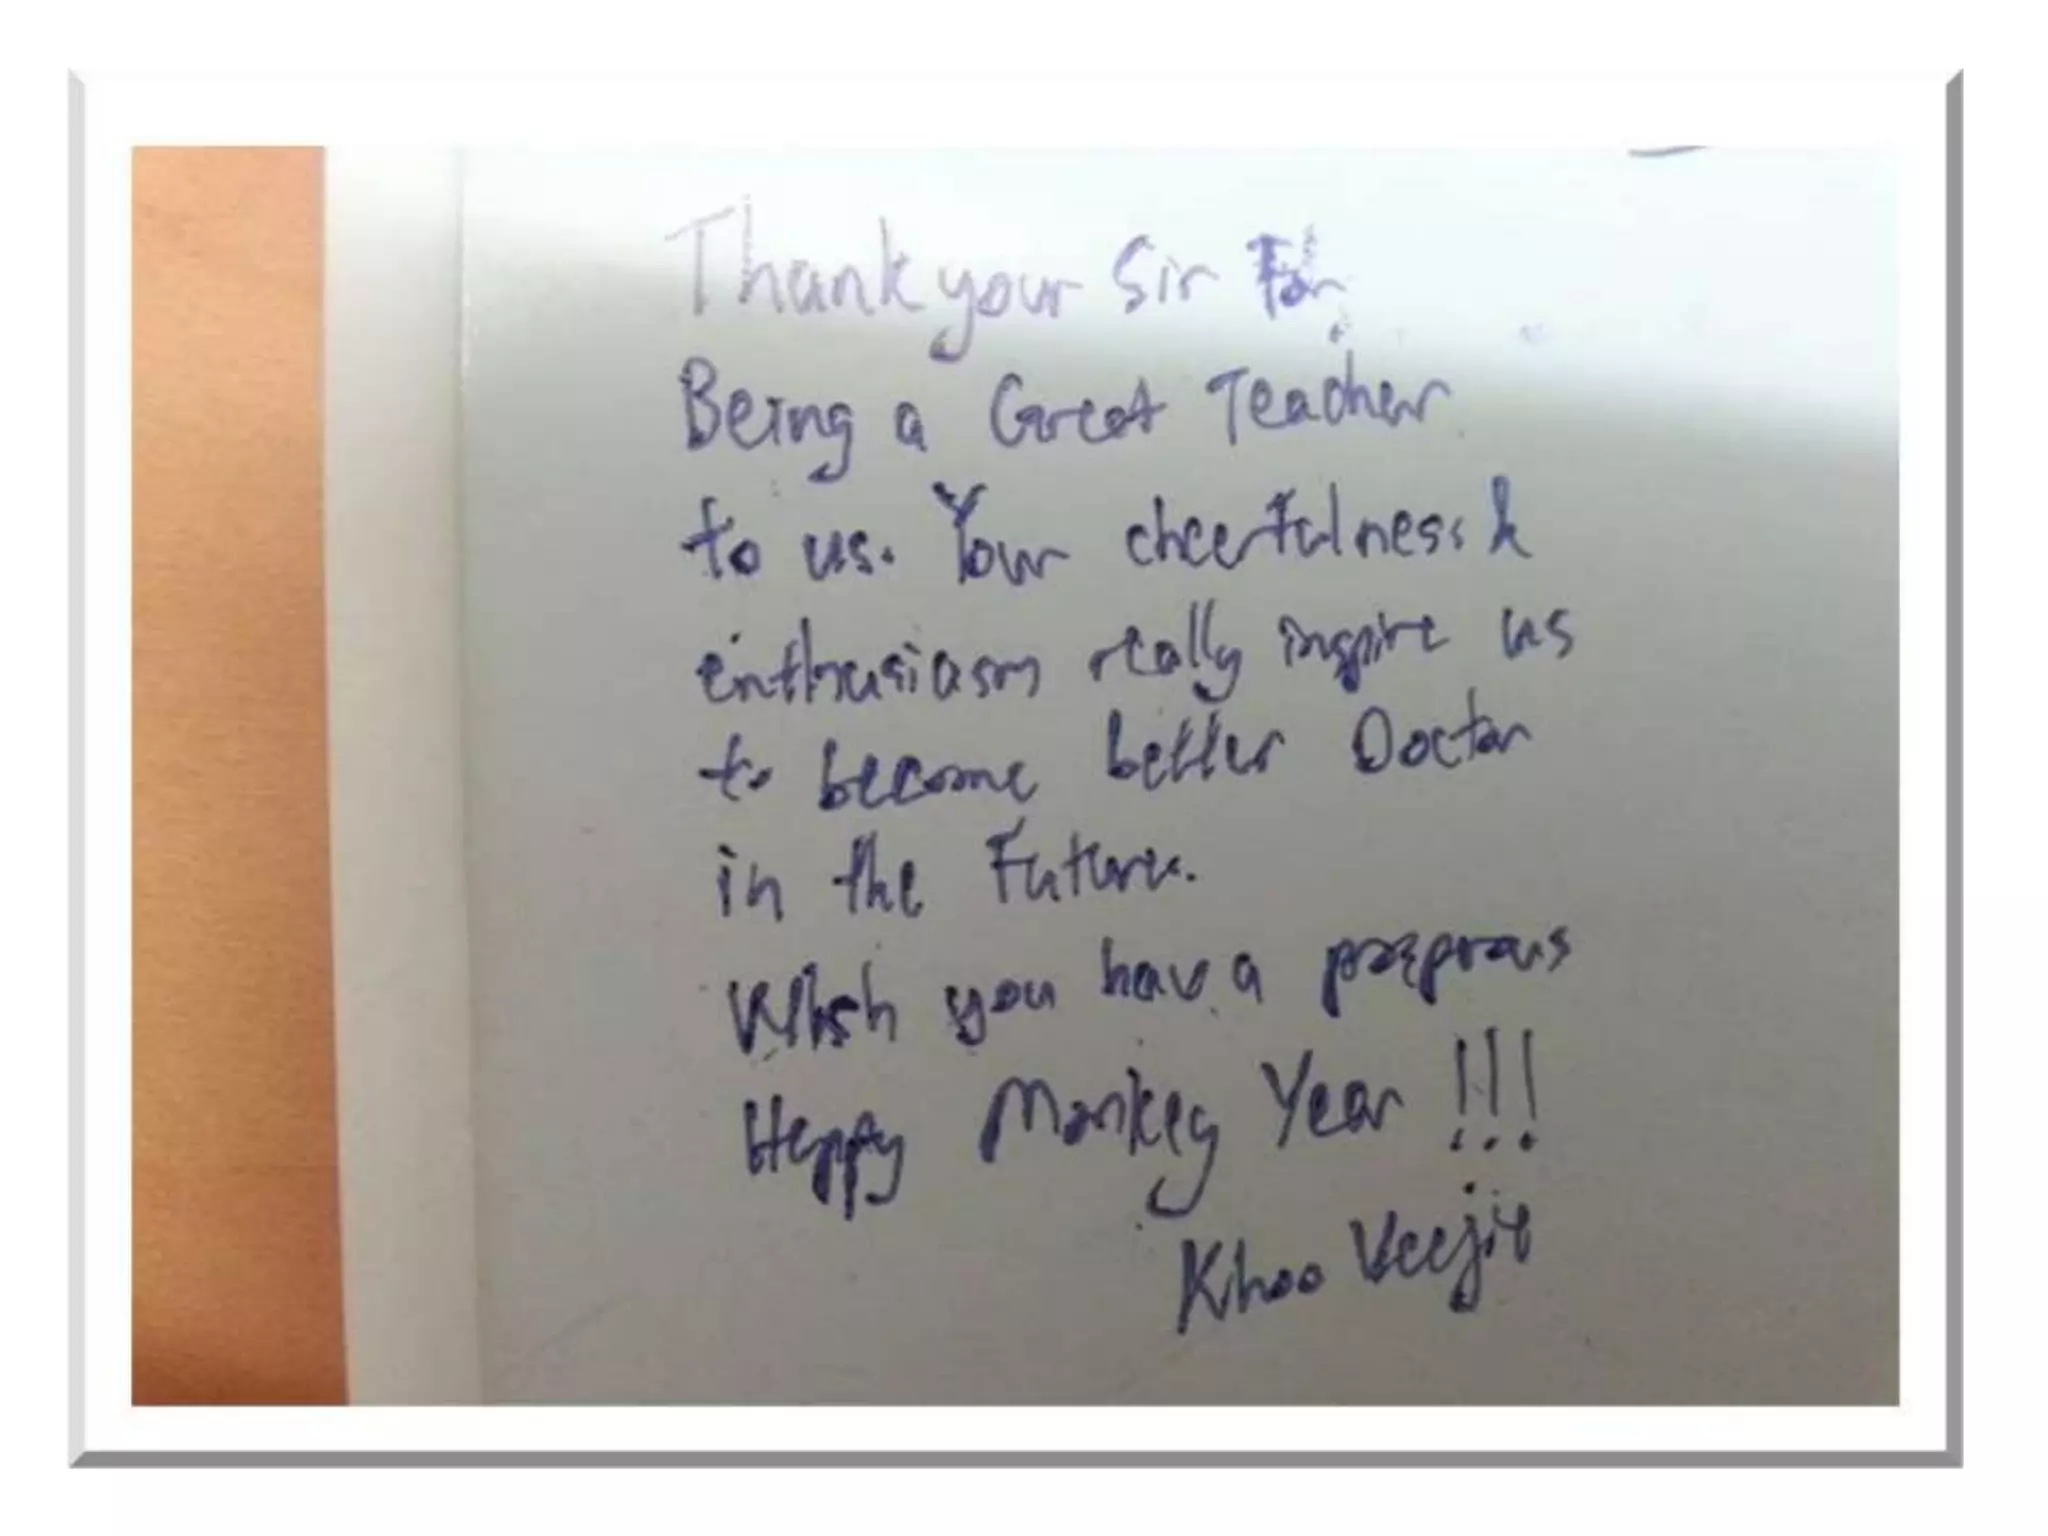 Thank your Sir For
Being a Great Teacher
to us. Your cheerfulness &
enthusiasm really inspire us
to become better Doctor
in the Future.
Wish you have a prosperous
Happy Monkey Year !!!
Khoo Veejie